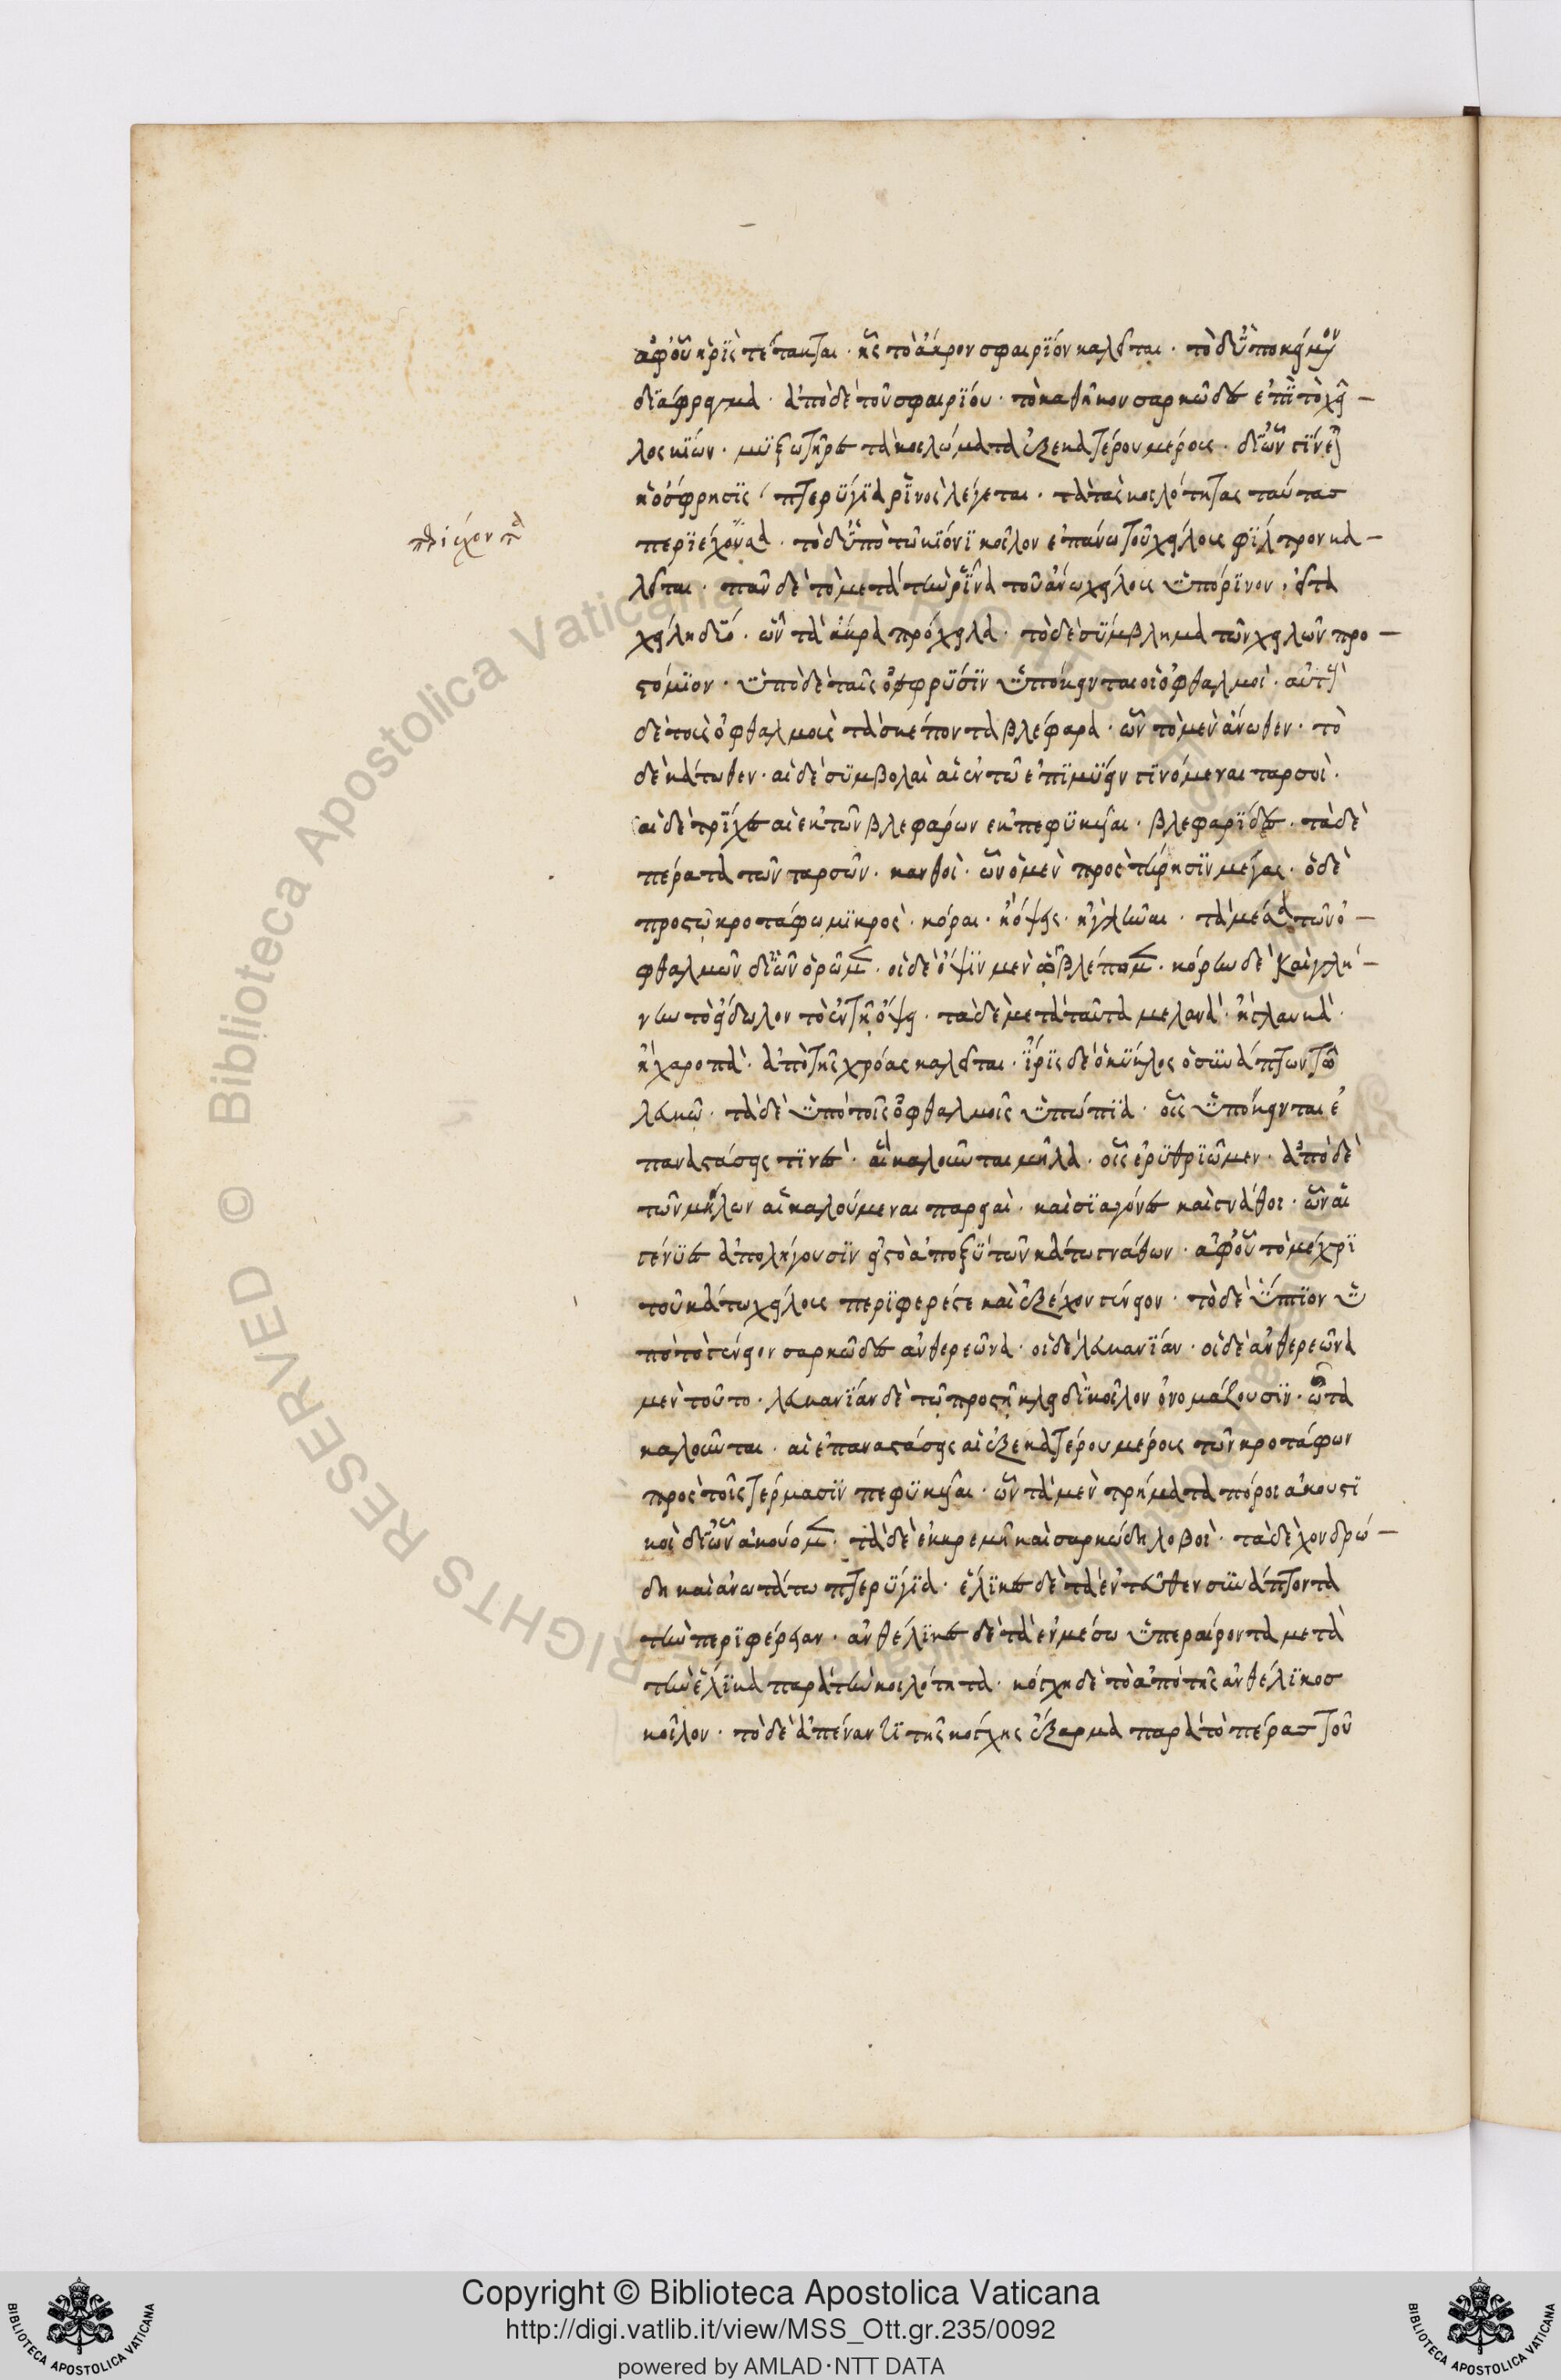 ἀφ' οὗ ἡ ρὶς τέτακται · ἧς τὸ ἄκρον σφαιρίον καλεῖται · τὸ δ' ὑποκείμενον
διάφραγμα · ἀπὸ δὲ τοῦ σφαιρίου · τὸ καθῆκον σαρκῶδες ἐπὶ τὸ χεῖ–
λος κιών · μυξωτῆρες τὰ κοιλώματα ἐξ ἑκατέρου μέρους · δι' ὧν γίνεται
ἡ ὄσφρησις · πτερύγια ρινὸς λέγεται · τὰ τὰς κοιλότητας ταύτας
περιέχοντα · τὸ δ' ὑπὸ τῶ κιόνι κοῖλον ἐπάνω τοῦ χείλους φίλτρον κα–
λεῖται · πᾶν δὲ τὸ μετὰ τὴν ρῖνα τοῦ ἄνω χείλους ὑπόρινον · εἶτα
χείλη δύο · ὧν τὰ ἄκρα πρόχειλα · τὸ δὲ σύμβλημα τῶν χειλῶν προ–
στόμιον · ὑπὸ δὲ ταῖς ὀφρύσιν ὑπόκεινται οἱ ὀφθαλμοὶ · αὐτοῖς
δὲ τοῖς ὀφθαλμοῖς τὰ σκέποντα βλέφαρα · ὧν τὸ μὲν ἄνωθεν · τὸ
δὲ κάτωθεν · αἱ δὲ συμβολαὶ αἱ ἐν τῶ ἐπιμύειν γινόμεναι ταρσοὶ ·
αἱ δὲ τρίχες αἱ ἐκ τῶν βλεφάρων ἐκπεφυκυῖαι · βλεφαρίδες · τὰ δὲ
πέρατα τῶν ταρσῶν · κανθοὶ · ὧν ὁ μὲν πρὸς τῇ ρήσιν μέγας · ὁ δὲ
πρὸς τῷ κροτάφω μικρὸς · κόραι · ἢ ὄψεις · ἢ γλῆναι · τὰ μέσα τῶν ὀ–
φθαλμῶν δι' ὧν ὁρῶμεν · οἱ δὲ ὄψιν μὲν ᾧ βλέπομεν · κόρην δὲ καὶ γλή–
νην τὸ εἴδωλον τὸ ἐν τῇ ὄψει · τὰ δὲ μετὰ ταῦτα μελανὰ · ἢ γλαυκὰ ·
ἢ χαροπὰ · ἀπὸ τῆς χρόας καλεῖται · ἶρις δὲ ὁ κύκλος ὁ συνάπτων τῶ
λευκῷ · τὰ δὲ ὑπὸ τοῖς ὀφθαλμοῖς ὑπώπια · οἷς ὑπόκεινται ἐ
παναστάσεις τινὲς · ἃ καλοῦνται μῆλα · οἷς ἐρυθριῶμεν · ἀπὸ δὲ
τῶν μήλων αἱ καλούμεναι παρειαὶ · καὶ σιαγόνες καὶ γνάθοι · ὧν αἱ
γένυες ἀπολήγουσιν εἰς τὸ ἀποξὺ τῶν κάτω γνάθων · ἀφ' οὗ τὸ μέχρι
τοῦ κάτω χείλους περιφερές τε καὶ ἐξέχον γένειον · τὸ δὲ ὕπιον ὑ
πὸ τὸ γένειον σαρκῶδες ἀνθερεῶνα · οἱ δὲ λευκανίαν · οἱ δὲ ἀνθερεῶνα
μὲν τοῦτο · λευκανίαν δὲ τῷ πρὸς τῇ κλειδὶ κοῖλον ὀνομάζουσιν · ὦτα
καλοῦνται · αἱ ἐπαναστάσεις αἱ ἐξ ἑκατέρου μέρους τῶν κροτάφων
πρὸς τοῖς τέρμασιν πεφυκυῖαι · ὧν τὰ μὲν τρήματα πόροι ἀκουστι
κοὶ δι' ὧν ἀκούομεν · τὰ δὲ ἐκκρεμῆ καὶ σαρκώδη λοβοὶ · τὰ δὲ χονδρώ–
δη καὶ ἀνωτάτω πτερύγια · ἕλικες δὲ τὰ ἐντεῦθεν συνάπτοντα
τὴν περιφέρειαν · ἀνθέλικες δὲ τὰ ἐν μέσω ὑπεραίροντα μετὰ
τὴν ἕλικα παρὰ τὴν κοιλότητα · κόγχη δὲ τὸ ἀπὸ τῆς ἀνθέλικος
κοῖλον · τὸ δὲ ἀπέναντι τῆς κόγχης ἔξαρμα παρὰ τὸ πέρας τοῦ
Copyright © Biblioteca Apostolica Vaticana
http://digi.vatlib.it/view/MSS_Ott.gr.235/0092
powered by AMLAD·NTT DATA
BIBLIOTECA APOSTOLICA VATICANA
BIBLIOTECA APOSTOLICA VATICANA
© Biblioteca Apostolica Vaticana ALL RIGHTS RESERVED